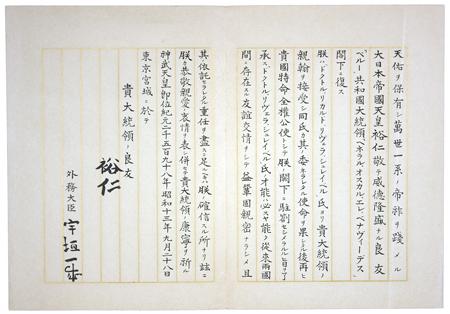 天佑ヲ保有シ萬世一系ノ帝祚ヲ踐メル
大日本帝國天皇裕仁敬テ威德隆盛ナル良友
「ペルー」共和國大統領「ヘネラル、オスカル、エレ、ベナヴィーデス」
閣下ニ復ス
朕ハ「ドクトル、リカルド、リヴェラ、シュレイベル」氏ヨリ貴大統領ノ
親翰ヲ接受シ同氏カ其ノ委ネラレタル使命ヲ果シタル後再ヒ
貴國特命全權公使トシテ朕ノ闕下ニ駐劄セシメラルル旨ヲ了
承ス「ドクトル、リヴェラ、シュレイベル」氏ノ才能ハ必スヤ能ク從來兩國
間ニ存在スル友誼ノ交情ヲシテ益鞏固親密ナラシメ且
其ノ依託セラレタル重任ヲ盡スニ足ルヘキハ朕ノ確信スル所ナリ玆ニ
朕ハ恭敬親愛ノ衷情ヲ表シ併セテ貴大統領ノ康寧ヲ祈ル
神武天皇卽位紀元二千五百九十八年昭和十三年九月二十八日
東京宮城ニ於テ
貴大統領ノ良友
裕仁
外務大臣 宇垣一成